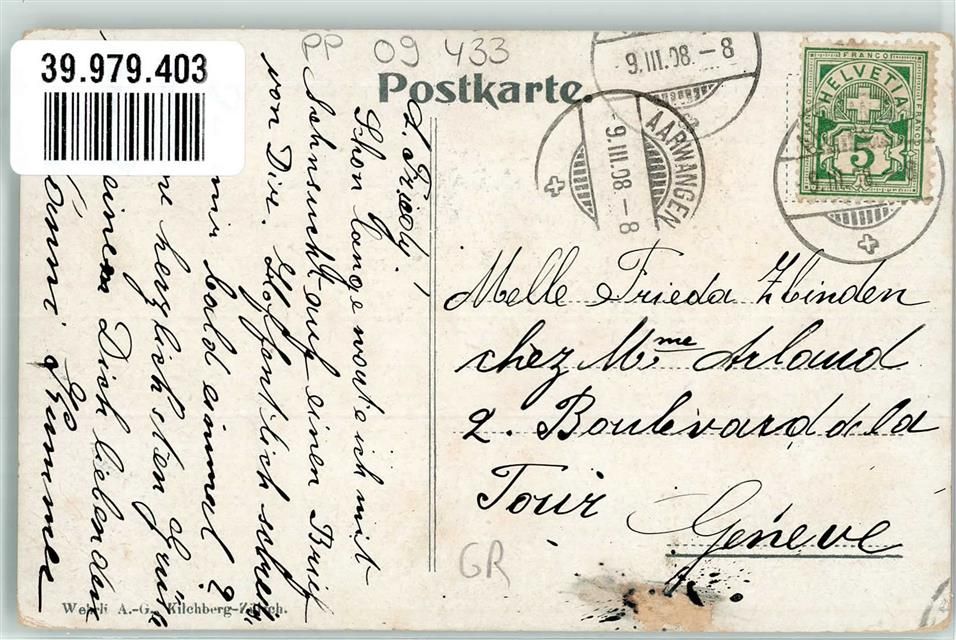 39.979.403
PP 09 433
Postkarte.
9.III.08.-8
AARWANGEN
9.III.08-8
FRANCO
HELVETIA
FRANCO
FRANCO
5
L. Friedy!
Schon lange warte ich mit
Sehnsucht auf einen Brief
von Dir. Hoffentlich schrei
mir bald einmal?
herzlichsten Grüs
Dich liebenden
Melle Frieda Zbinden
chez Mme Arland
2. Boulevard de la
Tour
Genéve
GR
Wehrli A.-G., Kilchberg-Zürich.